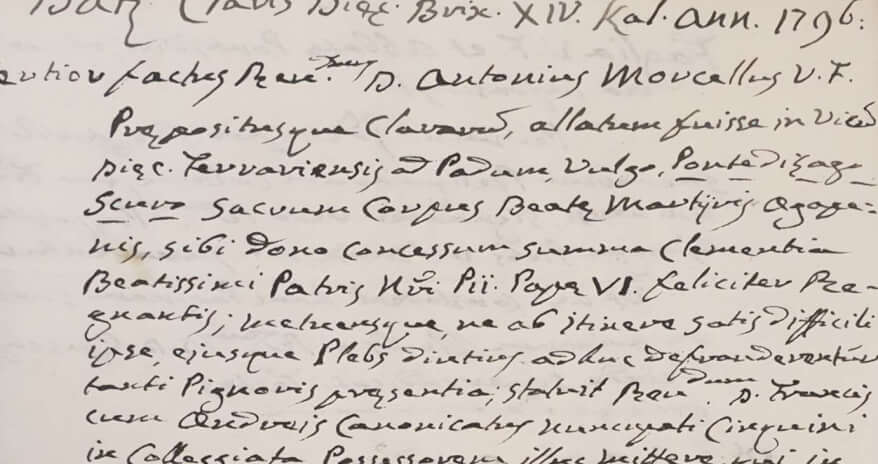 Datȩ Claris Diȩc. Brix. XIV. Kal. Ann. 1796:
factus Rev.mus D. Antonius Morcellus V. F.
Prȩpositusque Clararū, allatum fuisse in Vicū
Diȩc. Ferrariensis ad Padum, vulgo, Ponte di Lago
Scuro Sacrum Corpus Beatȩ Martÿris Agape-
nis, sibi dono concessum summa Clementia
Beatissimi Patris Nr̄i Pii. Papȩ VI. feliciter Re-
gnantis; metuensque, ne ab itinere satis difficili
ipse, ejusque Plebs diutius adhuc defraudarentur
tanti Pignoris prȩsentia, statuit Rev.dum D. Francis
cum Andreis Canonicatus nuncupati Cinquini
in Collegiata Possessorem illuc mittere, qui in